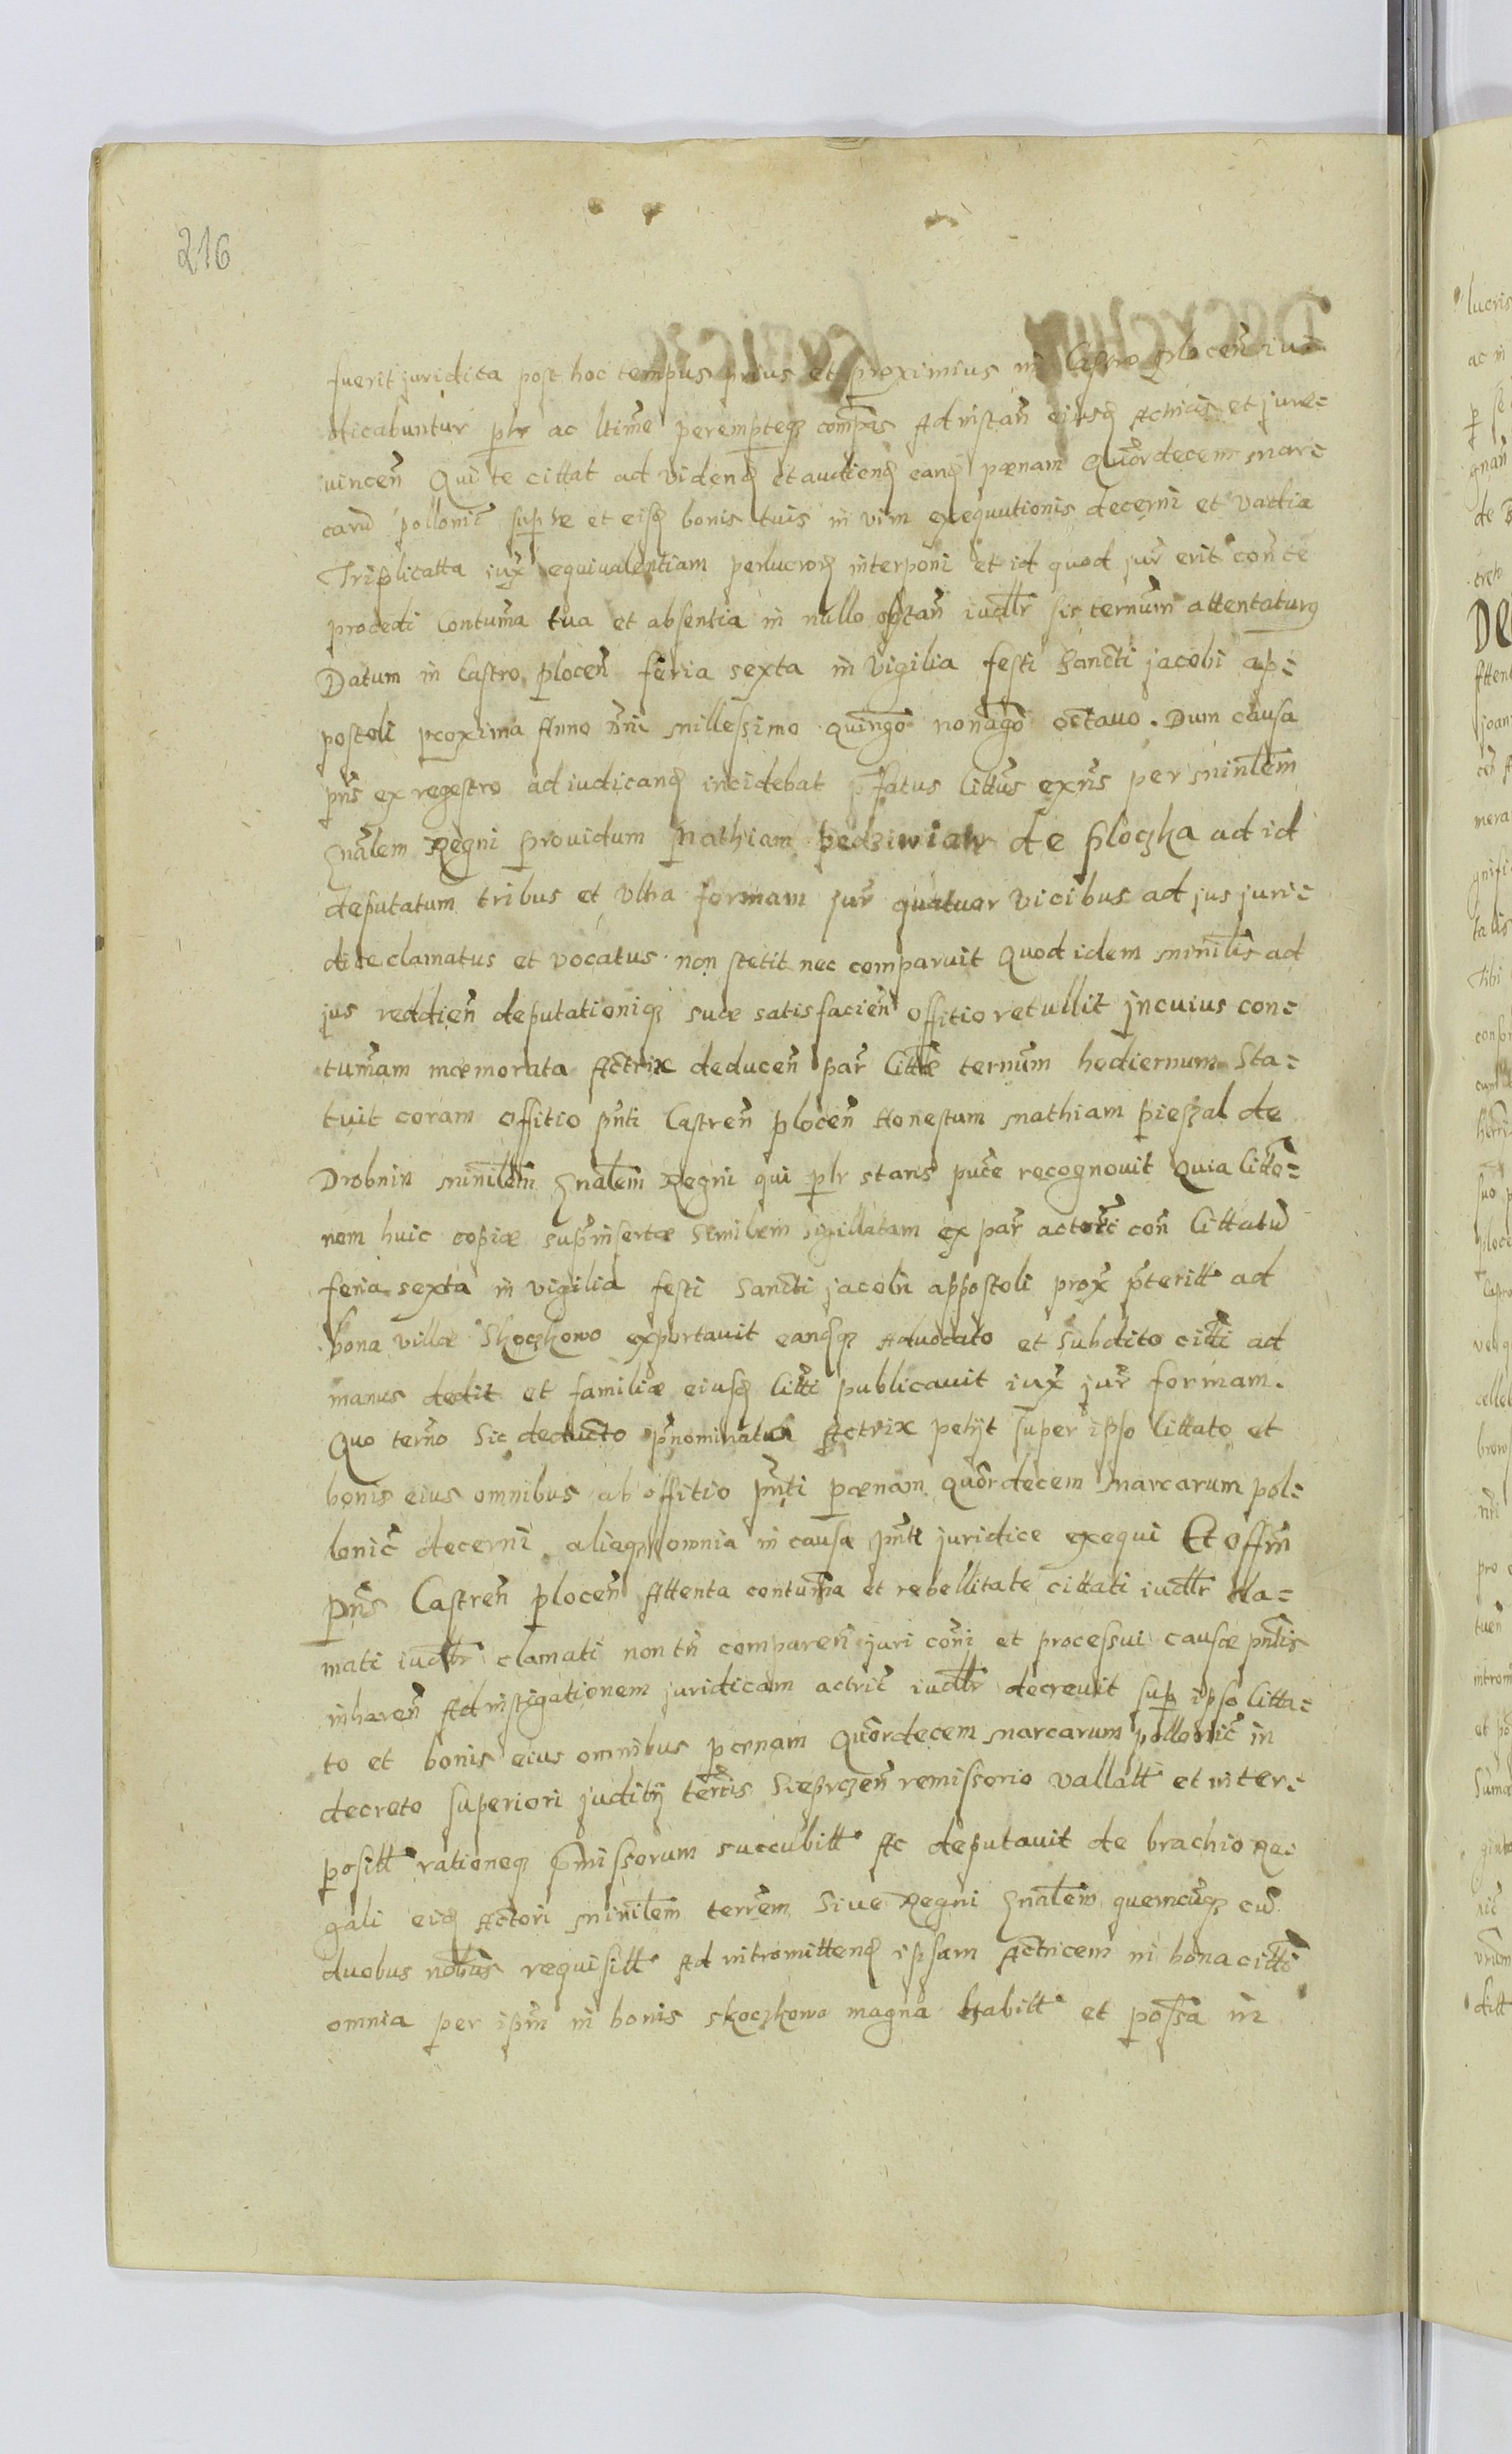 216
fuerit juridica post hoc tempus prius et proximius in Castro plocen̄ iu=
dicabuntur plr ac ltime perempteqȝ compas Ad instan̄ eiusd Actricis et jure
vincen̄ Qui te cittat ad videnđ et audienđ eanđ pœnam Quordecem mar=
carū pollonic̄ sup te et eisđ bonis tuis in vim exequutionis decerni et vadia
Triplicatta iux equivalentiam perlucrorȝ interponi et id quod jur̄ erit con te
procedi Contum̄a tua et absentia in nullo obstan̄ iudltr sis termim̄ attentaturȝ
Datum in Castro plocen̄ feria sexta in Vigilia festi Sancti jacobi ap=
postoli proxima Anno Dn̄i millessimo quingo nonago octauo. Dum causa
pn̄s ex regestro ad iudicanđ incidebat pfatus litt̄us exn̄s per minlem̄
Gnālem Regni prouidum Mathiam pedziwiatr de plocȝka ad id
deputatum tribus et vltra formam jur̄ quatuor vicibus ad jus juri=
dice clamatus et vocatus non stetit nec comparuit Quod idem minilis ad
jus reddien̄ deputationiqȝ suæ satisfacien̄ offitio retullit jn cuius con=
tum̄am mæmorata Actrix deducen̄ par̄ littæ termim̄ hodiernum Sta=
tuit coram offitio pn̄ti Castren̄ plocen̄ Honestum Mathiam pieszal de
Drobnin minilem̄ Gnālem Regni qui plr stans puce recognouit Quia litto=
nem huic copiæ supinsertæ Similem sigillatam ex par̄ actoric con̄ littatū
feria sexta in vigilia festi Sancti jacobi appostoli prox pteritt ad
bona villæ Skocȝkowo exportauit eandqȝ Aduocato et Subdito citti ad
manus dedit et familiæ eiusđ litti publicauit iux jur̄ formam.
Quo term̄o Sic deducto pn̄ominata Actrix petijt super ipso littato et
bonis eius omnibus ab offitio pn̄ti pœnam quordecem marcarum pol=
lonic̄ decerni aliaqȝ omnia in causa pn̄ti juridice exequi Et offm̄
pn̄s Castren̄ plocen̄ Attenta contum̄a et rebellitate cittati iudltr cla=
mati iudltr clamati non tn̄ comparen̄ juri con̄i et processui causæ pn̄tis
inhæren̄ Ad instigationem juridicam actric̄ iudltr decreuit sup ipso litta=
to et bonis eius omnibus pœnam Quordecem marcarum pollonic̄ in
decreto superiori juditij terrēis Sieprcȝen̄ remissorio vallatt et inter=
positt rationeqȝ pmissorum succubitt Ac deputauit de brachio Re=
gali eiđ Actori minilem̄ terrem̄ Siue Regni Gnālem quemcūqȝ cū
duobus nobus requisitt Ad intromittenđ ipsam Actricem in bona citti
omnia per ipm̄ in bonis skocȝkowo magna habitt et possa in